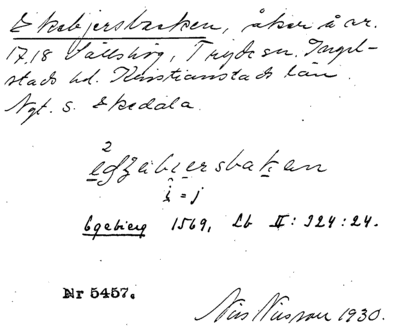 Ekebjersbacken, åker å nr.
17.18 Sällshög, Tryde sn. Ingel-
stads hd. Kristianstads län
Ngt. s. Ekedala.
2
i = j
Egebierg 1569, Lb II: 324:24.
Nr 5457.
Nils Nilsson 1930.